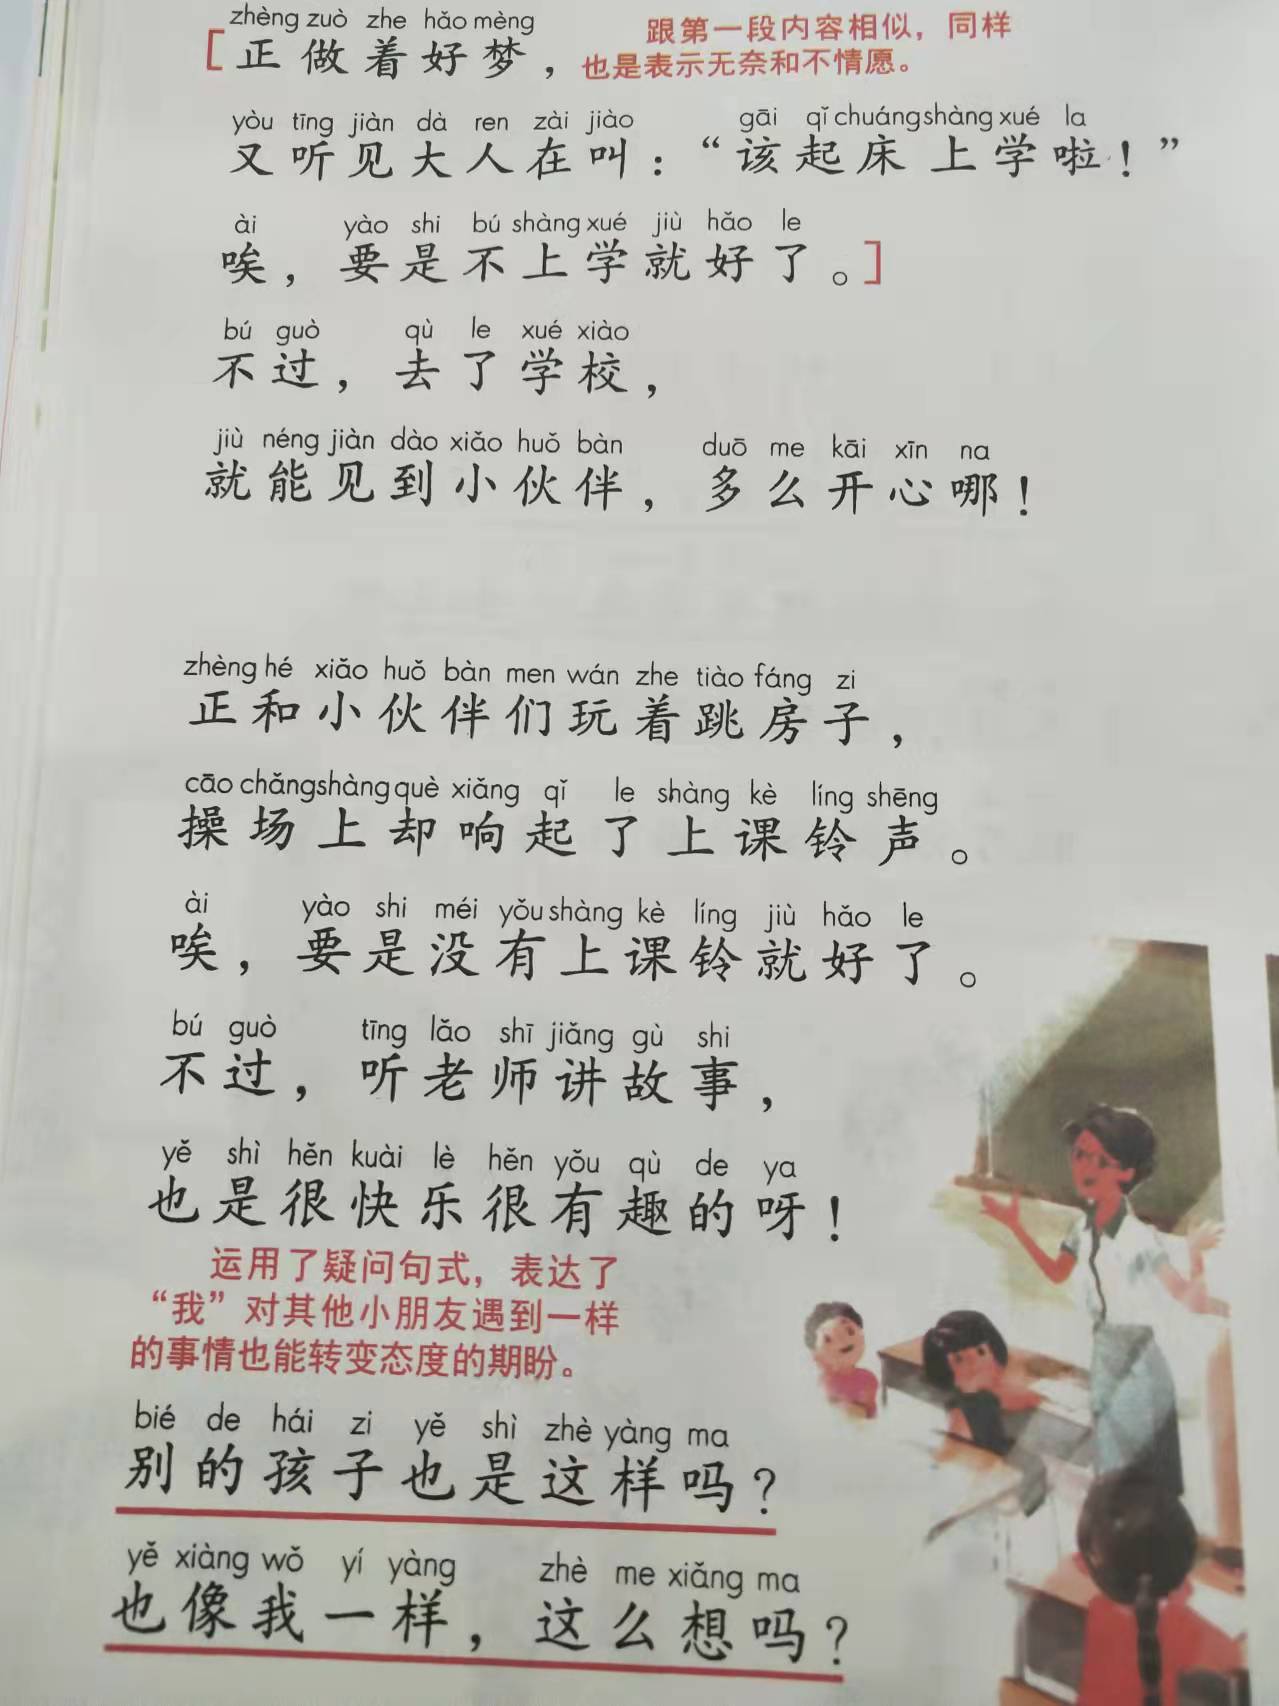 zhèng zuò zhe hǎo mèng
[正做着好梦， 跟第一段内容相似，同样
也是表示无奈和不情愿。
yòu tīng jiàn dà ren zài jiào gāi qǐ chuáng shàng xué la
又听见大人在叫：“该起床上学啦！”
ài yào shi bú shàng xué jiù hǎo le
唉，要是不上学就好了。]
bú guò qù le xué xiào
不过，去了学校，
jiù néng jiàn dào xiǎo huǒ bàn duō me kāi xīn na
就能见到小伙伴，多么开心哪！
zhèng hé xiǎo huǒ bàn men wán zhe tiào fáng zi
正和小伙伴们玩着跳房子，
cāo chǎng shàng què xiǎng qǐ le shàng kè líng shēng
操场上却响起了上课铃声。
ài yào shi méi yǒu shàng kè líng jiù hǎo le
唉，要是没有上课铃就好了。
bú guò tīng lǎo shī jiǎng gù shi
不过，听老师讲故事，
yě shì hěn kuài lè hěn yǒu qù de ya
也是很快乐很有趣的呀！
运用了疑问句式，表达了
“我”对其他小朋友遇到一样
的事情也能转变态度的期盼。
bié de hái zi yě shì zhè yàng ma
别的孩子也是这样吗？
yě xiàng wǒ yí yàng zhè me xiǎng ma
也像我一样，这么想吗？